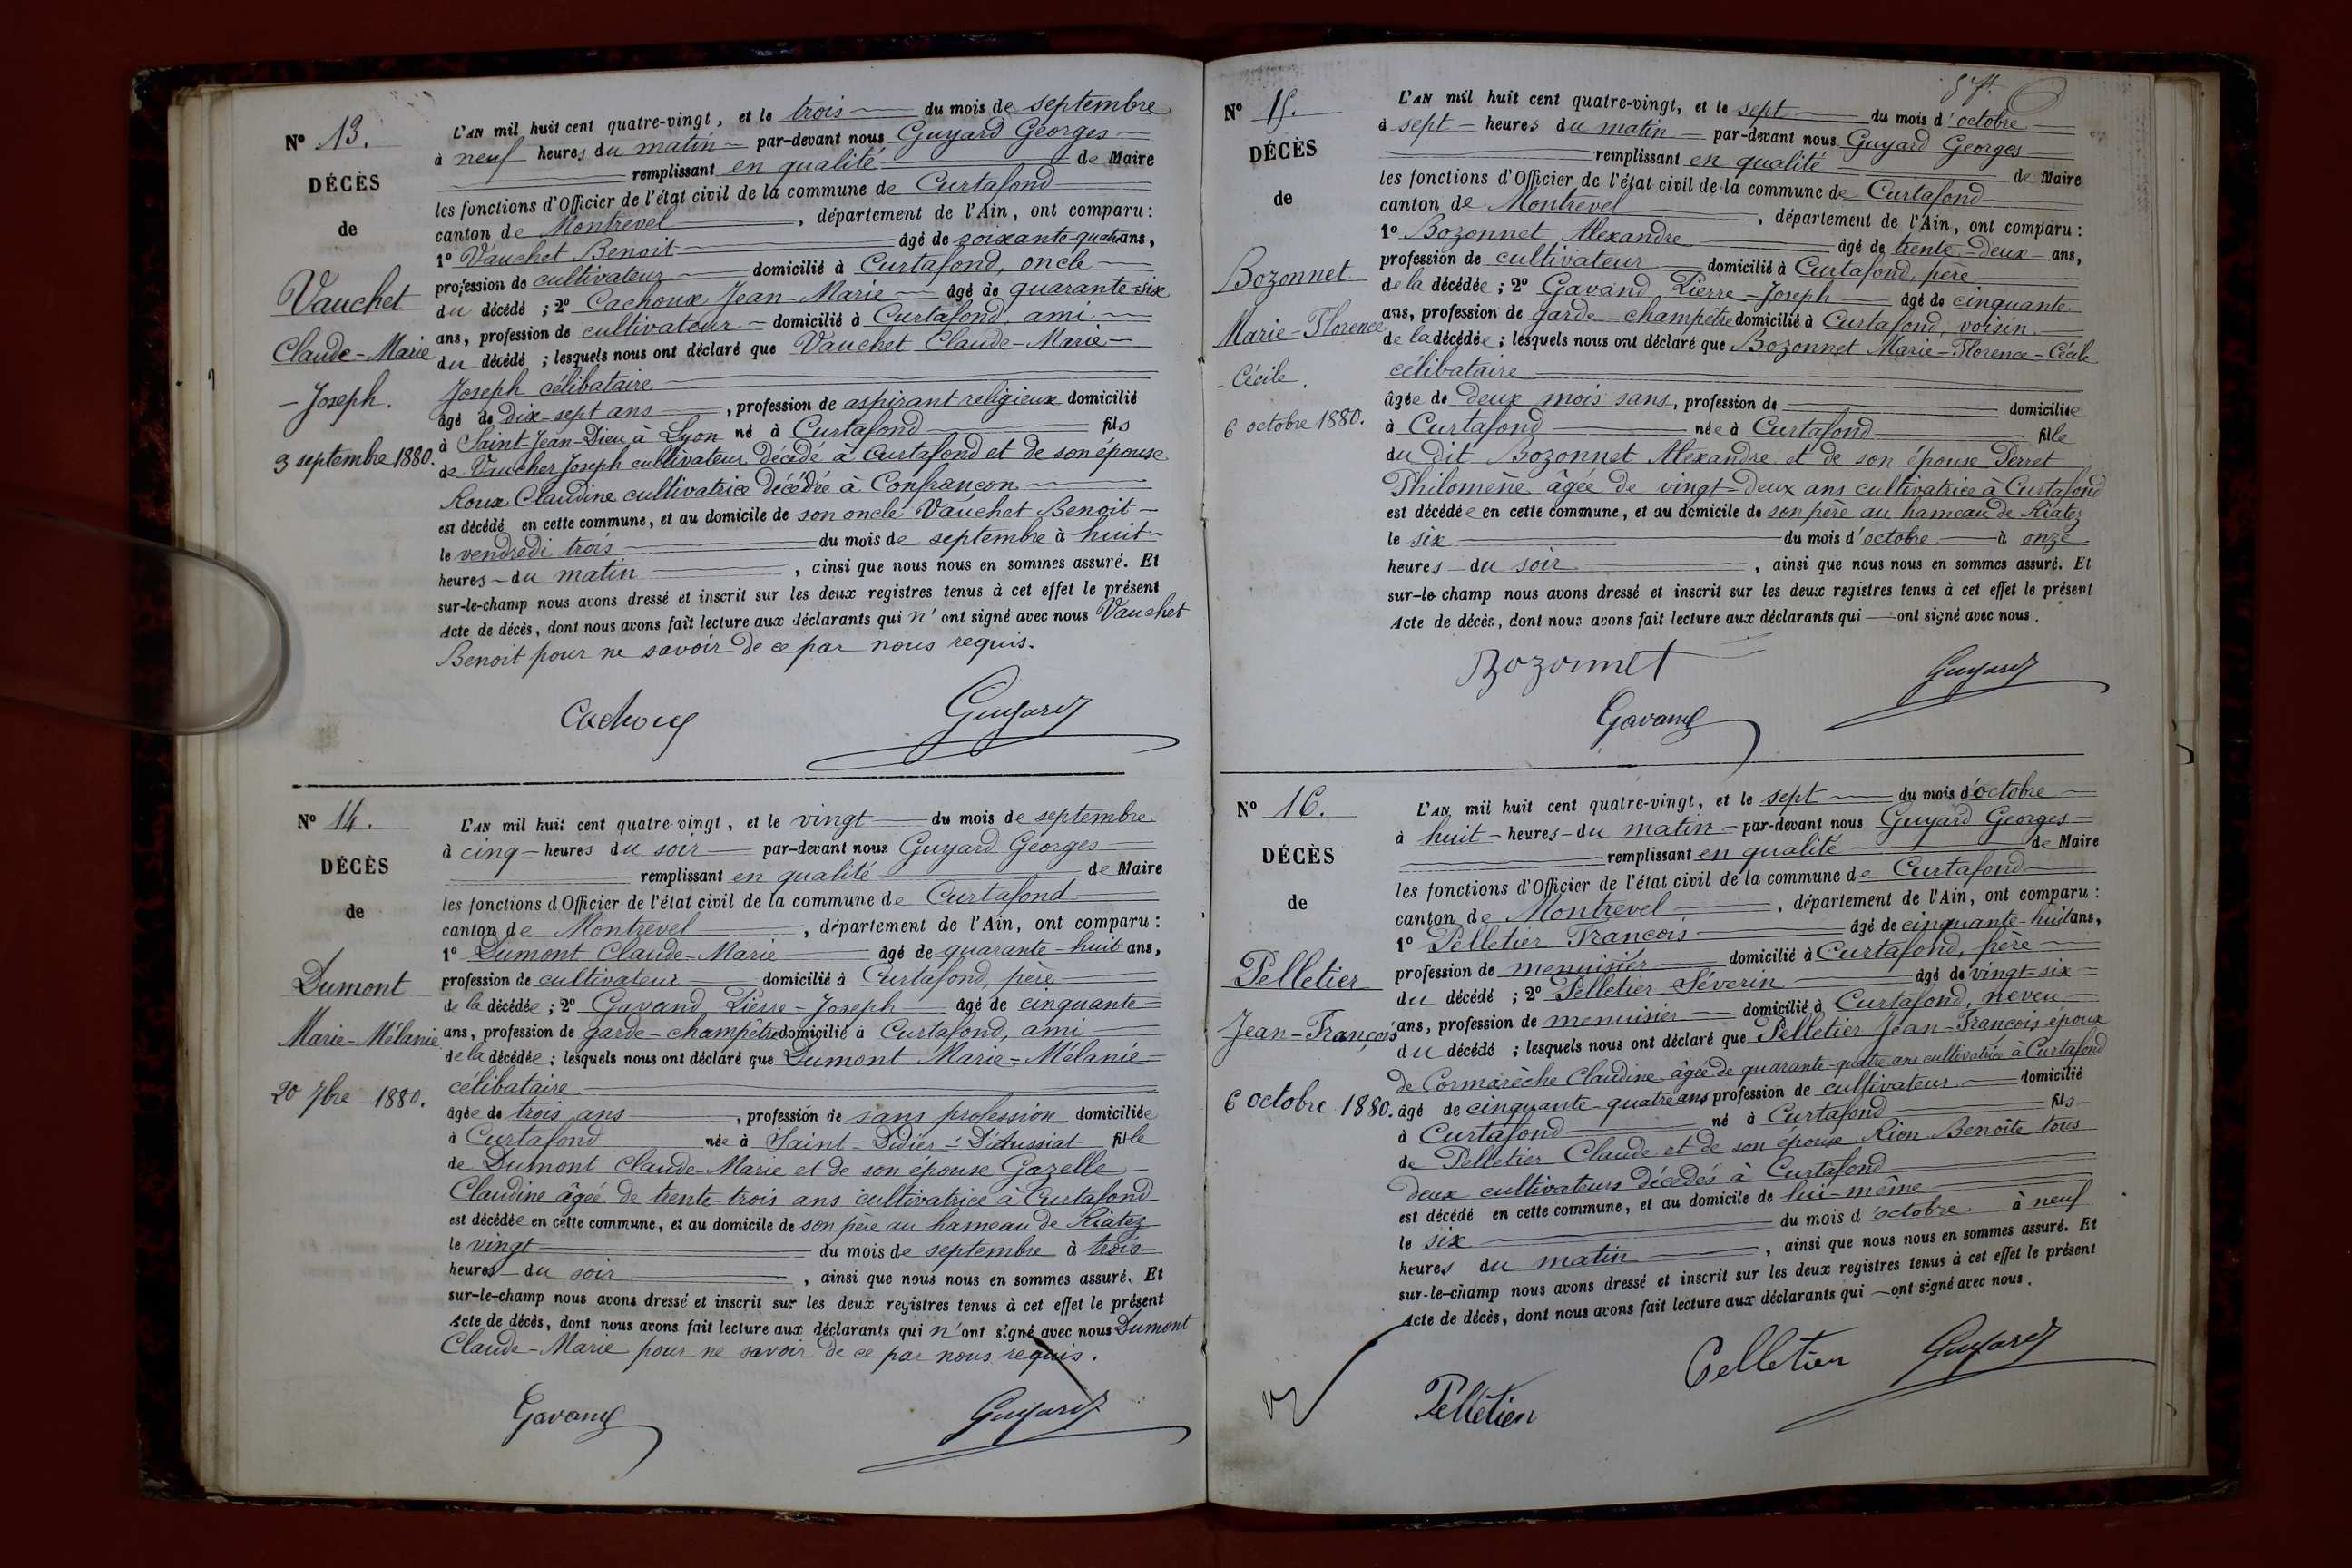 N° 13.
DÉCÈS
de
Vauchet
Claude-Marie
- Joseph.
3 septembre 1880.
L'AN mil huit cent quatre-vingt, et le trois du mois de septembre
à neuf heures du matin par-devant nous Guyard Georges
remplissant en qualité de Maire
les fonctions d'Officier de l'état civil de la commune de Curtafond
canton de Montrevel, département de l'Ain, ont comparu:
1° Vauchet Benoit âgé de soixante-quatre ans,
profession de cultivateur domicilié à Curtafond, oncle
du décédé ; 2° Cachoux Jean-Marie âgé de quarante-six
ans, profession de cultivateur domicilié à Curtafond, ami
du décédé ; lesquels nous ont déclaré que Vauchet Claude-Marie-
Joseph célibataire
âgé de dix-sept ans, profession de aspirant religieux domicilié
à Saint-Jean-Dieu à Lyon né à Curtafond fils
de Vaucher Joseph cultivateur décédé à Curtafond et de son épouse
Roux Claudine cultivatrice décédée à Confrançon
est décédé en cette commune, et au domicile de son oncle Vauchet Benoit
le vendredi trois du mois de septembre à huit
heures du matin, ainsi que nous nous en sommes assuré. Et
sur-le-champ nous avons dressé et inscrit sur les deux registres tenus à cet effet le présent
Acte de décès, dont nous avons fait lecture aux déclarants qui n'ont signé avec nous Vauchet
Benoit pour ne savoir de ce par nous requis.
Cachoux Guyard
N° 14.
DÉCÈS
de
Dumont
Marie-Mélanie
20 7bre 1880.
L'AN mil huit cent quatre-vingt, et le vingt du mois de septembre
à cinq heures du soir par-devant nous Guyard Georges
remplissant en qualité de Maire
les fonctions d'Officier de l'état civil de la commune de Curtafond
canton de Montrevel, département de l'Ain, ont comparu:
1° Dumont Claude-Marie âgé de quarante-huit ans,
profession de cultivateur domicilié à Curtafond, père
de la décédée ; 2° Gavand Pierre-Joseph âgé de cinquante
ans, profession de garde-champêtre domicilié à Curtafond, ami
de la décédée ; lesquels nous ont déclaré que Dumont Marie-Mélanie
célibataire
âgée de trois ans, profession de sans profession domiciliée
à Curtafond née à Saint-Didier-D'Aussiat fille
de Dumont Claude-Marie et de son épouse Gazelle
Claudine âgée de trente-trois ans cultivatrice à Curtafond
est décédée en cette commune, et au domicile de son père au hameau de Riatez
le vingt du mois de septembre à trois
heures du soir, ainsi que nous nous en sommes assuré. Et
sur-le-champ nous avons dressé et inscrit sur les deux registres tenus à cet effet le présent
Acte de décès, dont nous avons fait lecture aux déclarants qui n'ont signé avec nous Dumont
Claude-Marie pour ne savoir de ce par nous requis.
Gavand Guyard
N° 15.
DÉCÈS
de
Bozonnet
Marie-Florence
- Cécile.
6 octobre 1880.
L'AN mil huit cent quatre-vingt, et le sept du mois d'octobre
à sept heures du matin par-devant nous Guyard Georges
remplissant en qualité de Maire
les fonctions d'Officier de l'état civil de la commune de Curtafond
canton de Montrevel, département de l'Ain, ont comparu:
1° Bozonnet Alexandre âgé de trente-deux ans,
profession de cultivateur domicilié à Curtafond, père
de la décédée ; 2° Gavand Pierre-Joseph âgé de cinquante
ans, profession de garde-champêtre domicilié à Curtafond, voisin
de la décédée ; lesquels nous ont déclaré que Bozonnet Marie-Florence-Cécile
célibataire
âgée de deux mois sans, profession de domiciliée
à Curtafond née à Curtafond fille
du dit Bozonnet Alexandre et de son épouse Perret
Philomène âgée de vingt-deux ans cultivatrice à Curtafond
est décédée en cette commune, et au domicile de son père au hameau de Riatez
le six du mois d'octobre à onze
heures du soir, ainsi que nous nous en sommes assuré. Et
sur-le-champ nous avons dressé et inscrit sur les deux registres tenus à cet effet le présent
Acte de décès, dont nous avons fait lecture aux déclarants qui ont signé avec nous.
Bozonnet Guyard
Gavand
N° 16.
DÉCÈS
de
Pelletier
Jean-François
6 octobre 1880.
L'AN mil huit cent quatre-vingt, et le sept du mois d'octobre
à huit heures du matin par-devant nous Guyard Georges
remplissant en qualité de Maire
les fonctions d'Officier de l'état civil de la commune de Curtafond
canton de Montrevel, département de l'Ain, ont comparu:
1° Pelletier François âgé de cinquante-huit ans,
profession de menuisier domicilié à Curtafond, père
du décédé ; 2° Pelletier Séverin âgé de vingt-six
ans, profession de menuisier domicilié à Curtafond, neveu
du décédé ; lesquels nous ont déclaré que Pelletier Jean-François époux
de Cormarèche Claudine âgée de quarante-quatre ans cultivatrice à Curtafond
âgé de cinquante-quatre ans profession de cultivateur domicilié
à Curtafond né à Curtafond fils
de Pelletier Claude et de son épouse Rion Benoîte tous
deux cultivateurs décédés à Curtafond
est décédé en cette commune, et au domicile de lui-même
le six du mois d'octobre à neuf
heures du matin, ainsi que nous nous en sommes assuré. Et
sur-le-champ nous avons dressé et inscrit sur les deux registres tenus à cet effet le présent
Acte de décès, dont nous avons fait lecture aux déclarants qui ont signé avec nous.
Pelletier Guyard
Pelletier